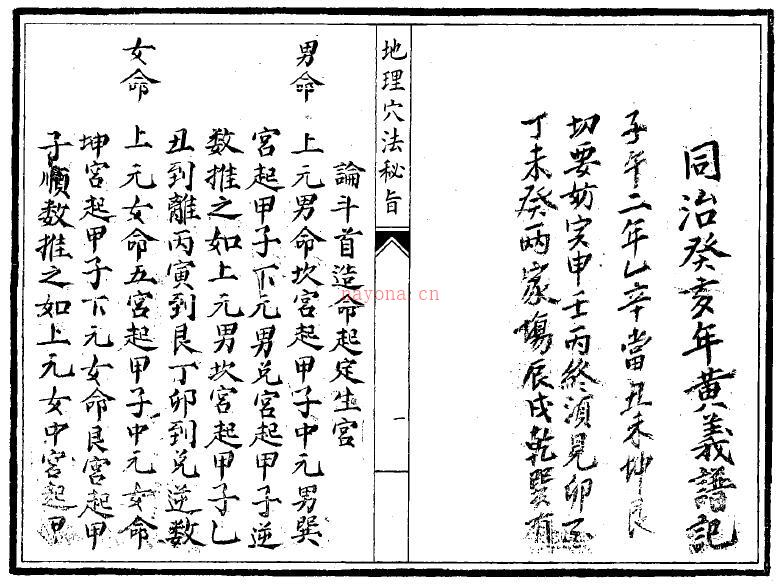 同治癸亥年黄義譜記
子午二年乙辛當丑未坤艮
切要妨寅申壬丙終須見卯酉
丁未癸两家塲辰戌乾巽有
地理穴法秘旨
一
論斗首造命起定生宮
男命 上元男命坎宮起甲子中元男巽
宮起甲子下元男兑宮起甲子逆
数推之如上元男坎宮起甲子乙
丑到離丙寅到艮丁卯到兑逆数
女命 上元女命五宮起甲子中元女命
坤宮起甲子下元女命艮宮起甲
子順数推之如上元女中宮起甲
nayona.cn